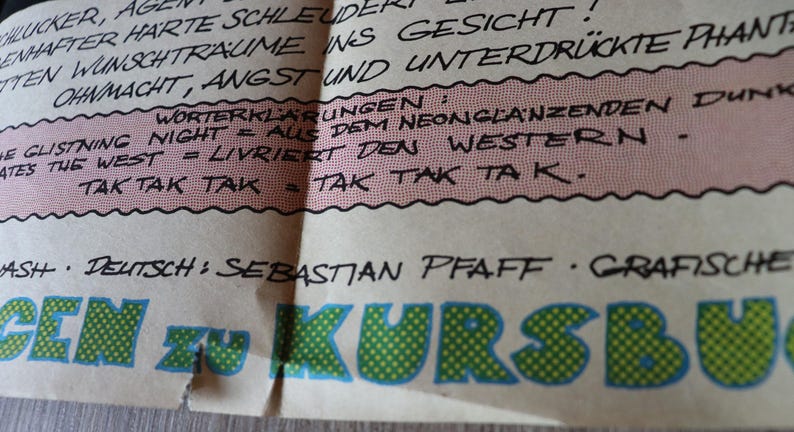 CHLUCKER, AGENT
ENHAFTER HÄRTE SCHLEUDERT
TTEN WUNSCHTRÄUME INS GESICHT!
OHNMACHT, ANGST UND UNTERDRÜCKTE PHANTA
WÖRTERKLÄRUNGEN:
HE GLISTNING NIGHT = AUS DEM NEONGLÄNZENDEN DUNK
ATES THE WEST = LIVRIERT DEN WESTERN.
TAK TAK TAK = TAK TAK TAK.
ASH · DEUTSCH: SEBASTIAN PFAFF · GRAFISCHE
GEN ZU KURSBU